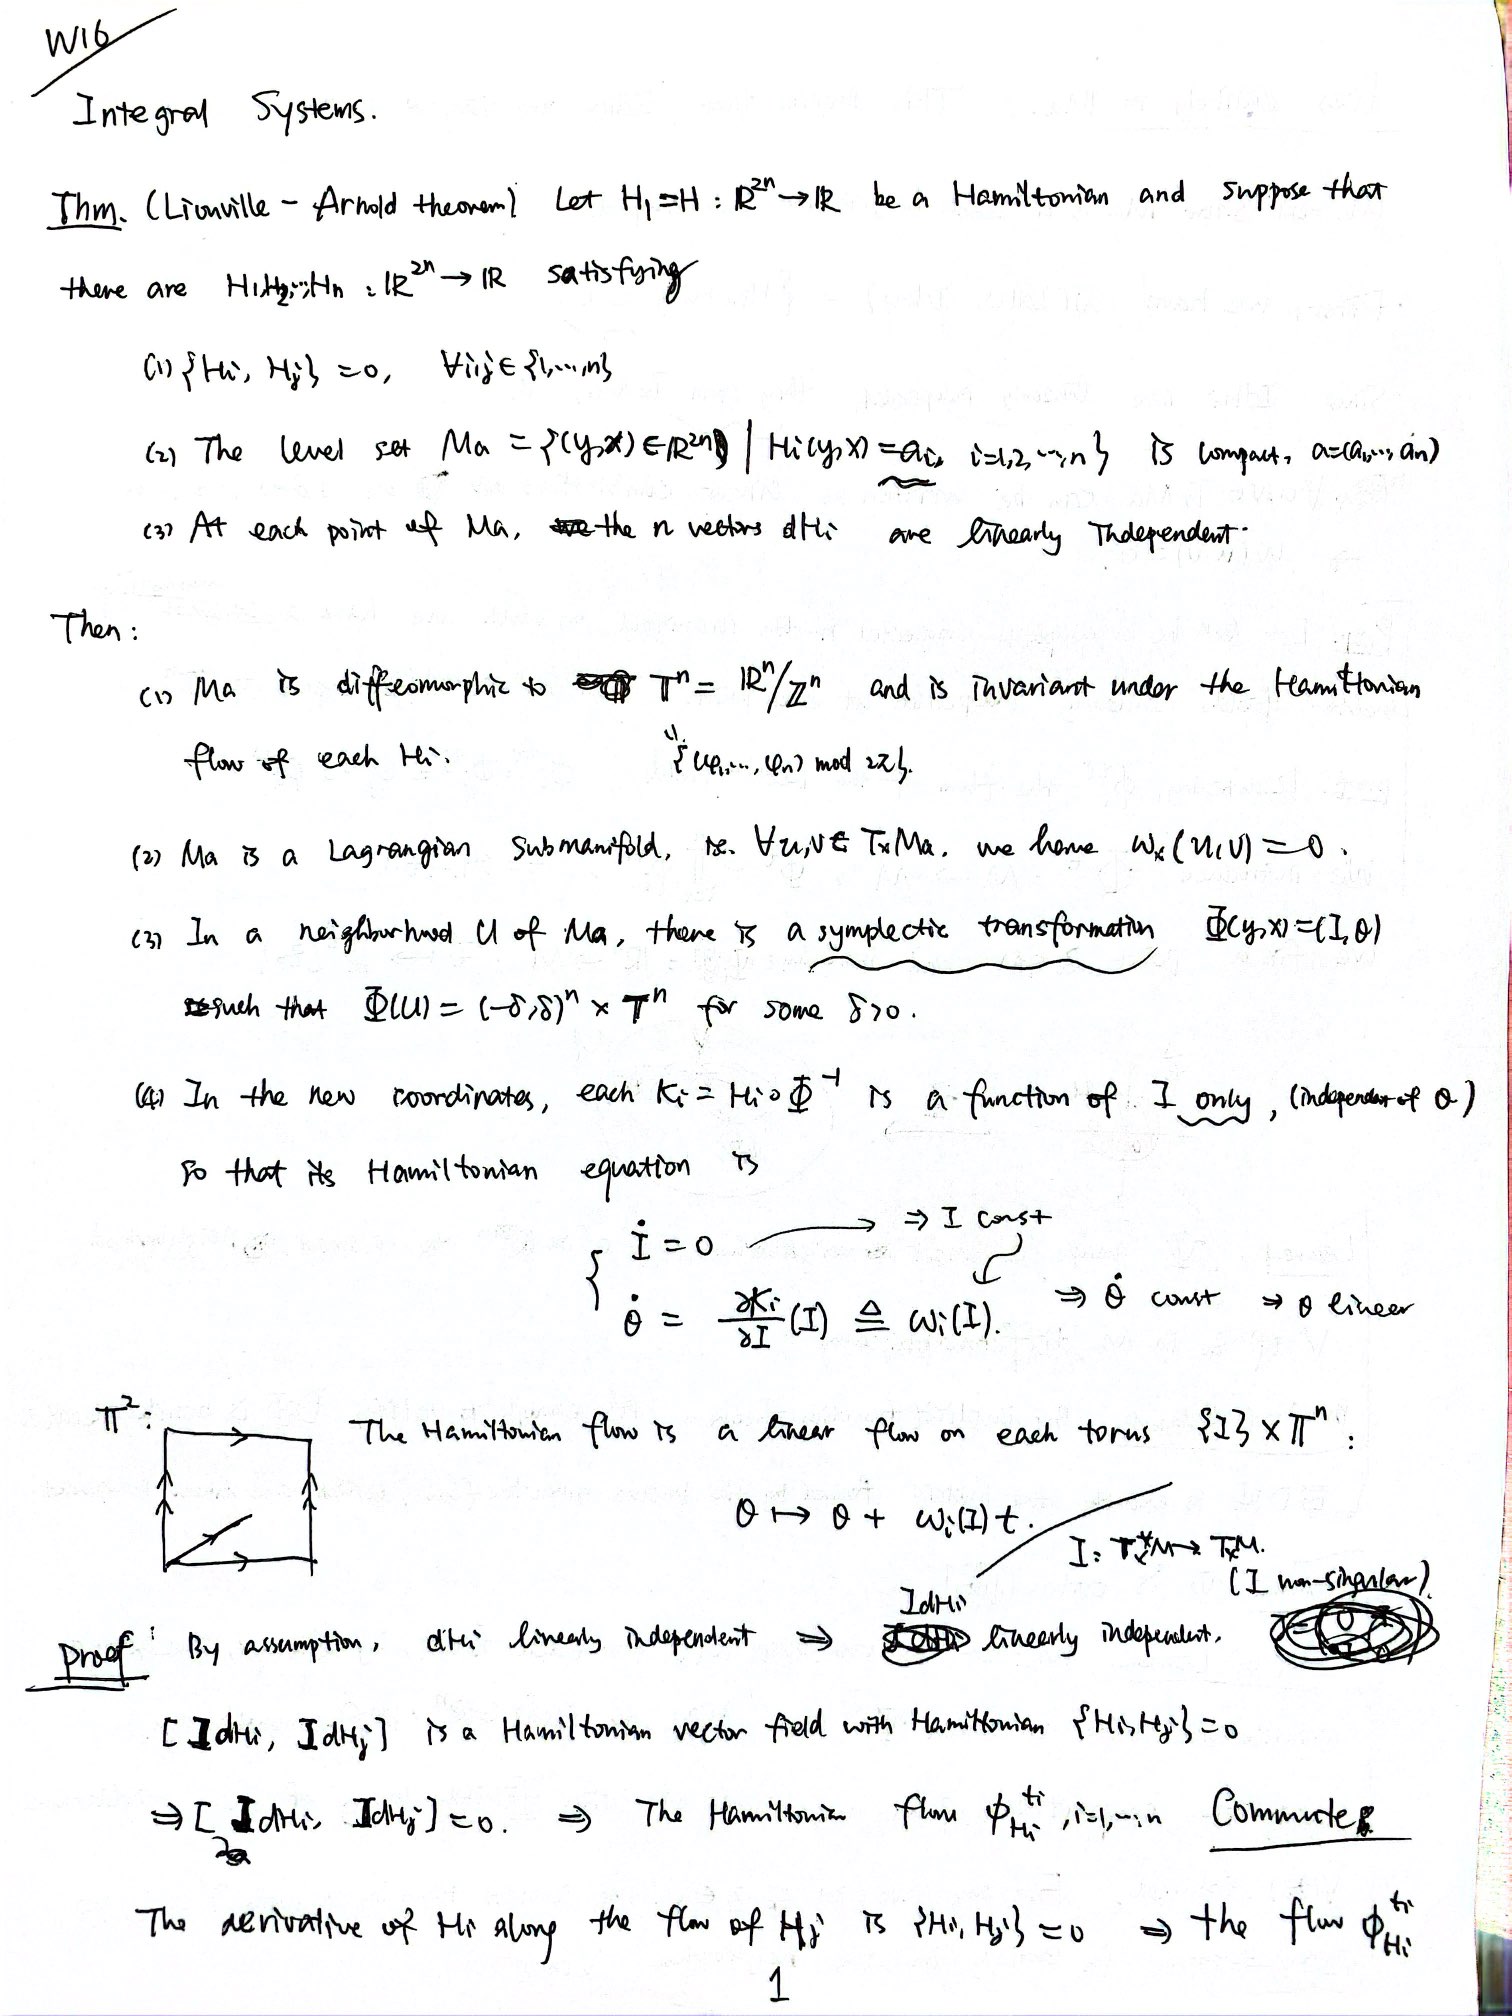 W16
Integral Systems.
Thm. (Liouville - Arnold theorem) Let H₁=H : ℝ²ⁿ→ℝ be a Hamiltonian and suppose that
there are H₁,H₂,...,Hn : ℝ²ⁿ→ℝ satisfying
(1) {Hi, Hj} =0, ∀i,j∈{1,...,n}
(2) The level set Ma = {(y,x)∈ℝ²ⁿ | Hi(y,x) =ai, i=1,2,...,n} is compact, a=(a₁,..., an)
(3) At each point of Ma, the n vectors dHi are linearly independent.
Then:
(1) Ma is diffeomorphic to 𝕋ⁿ= ℝⁿ/ℤⁿ and is invariant under the Hamiltonian
flow of each Hi. {(φ₁,..., φn) mod 2π}.
(2) Ma is a Lagrangian submanifold, ie. ∀u,v∈ TxMa, we have ωx(u,v)=0.
(3) In a neighborhood U of Ma, there is a symplectic transformation Φ(y,x)=(I,θ)
such that Φ(U) = (-δ,δ)ⁿ × 𝕋ⁿ for some δ>0.
(4) In the new coordinates, each Ki = Hi∘Φ⁻¹ is a function of I only, (independent of θ)
so that its Hamiltonian equation is
İ = 0 ⇒ I const
θ̇ = ∂Ki/∂I (I) ≜ ωi(I). ⇒ θ̇ const → θ linear
𝕋²: The Hamiltonian flow is a linear flow on each torus {I}×𝕋ⁿ:
θ ↦ θ + ωi(I)t.
I: Tx*M→ TxM.
(I non-singular)
Proof: By assumption, dHi linearly independent ⇒ IdHi linearly independent.
[IdHi, IdHj] is a Hamiltonian vector field with Hamiltonian {Hi,Hj}=0
⇒ [IdHi, IdHj]=0. ⇒ The Hamiltonian flow ϕ_{Hi}^{ti}, i=1,...,n Commute
The derivative of Hi along the flow of Hj is {Hi, Hj}=0 ⇒ the flow ϕ_{Hi}^{ti}
1